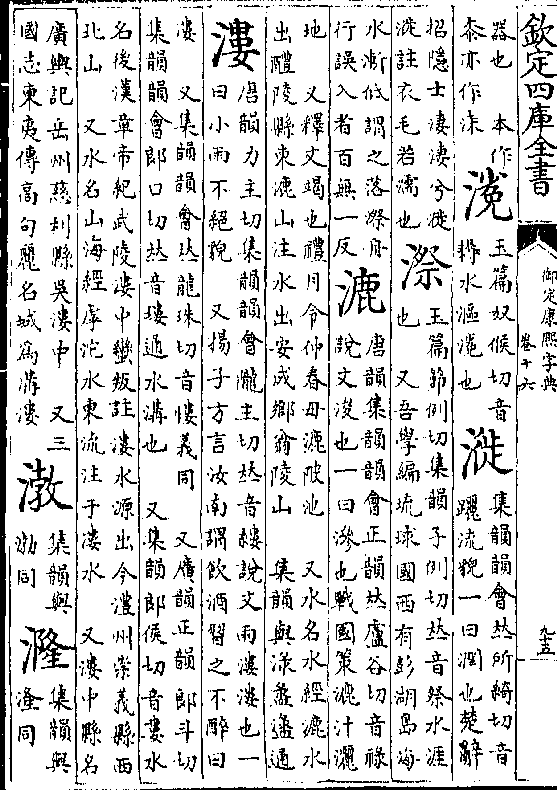 欽定四庫全書
御定康熙字典
卷十六
九五
器也　本作
桼亦作
玉篇奴候切音
耨水漚也
漇
集韻韻會𠀤所綺切音
躧流貌一曰潤也楚辭
招隱士淒淒兮漇
漇註衣毛若濡也
漈
玉篇節例切集韻子例切𠀤音祭水涯
也　又吾學編琉球國西有彭湖島海
水漸低謂之落漈舟
行誤入者百無一反
漉
唐韻集韻韻會正韻𠀤盧谷切音祿
說文浚也一曰滲也戰國策漉汁灑
地　又釋文竭也禮月令仲春毋漉陂池　又水名水經漉水
出醴陵縣東漉山注水出安成鄉翁陵山　集韻與淥盝通
漊
唐韻力主切集韻韻會隴主切𠀤音縷說文雨漊漊也一
曰小雨不絕貌　又揚子方言汝南謂飲酒習之不醉曰
漊　又集韻韻會𠀤龍珠切音慺義同　又廣韻正韻郎斗切
集韻韻會郎口切𠀤音塿通水溝也　又集韻郎侯切音婁水
名後漢章帝紀武陵漊中蠻叛註漊水源出今澧州崇義縣西
北山　又水名山海經虖沱水東流注于漊水　又漊中縣名
廣輿記岳州慈利縣吳漊中　又三
國志東夷傳高句麗名城為溝漊
集韻與
渤同
漋
集韻與
湰同